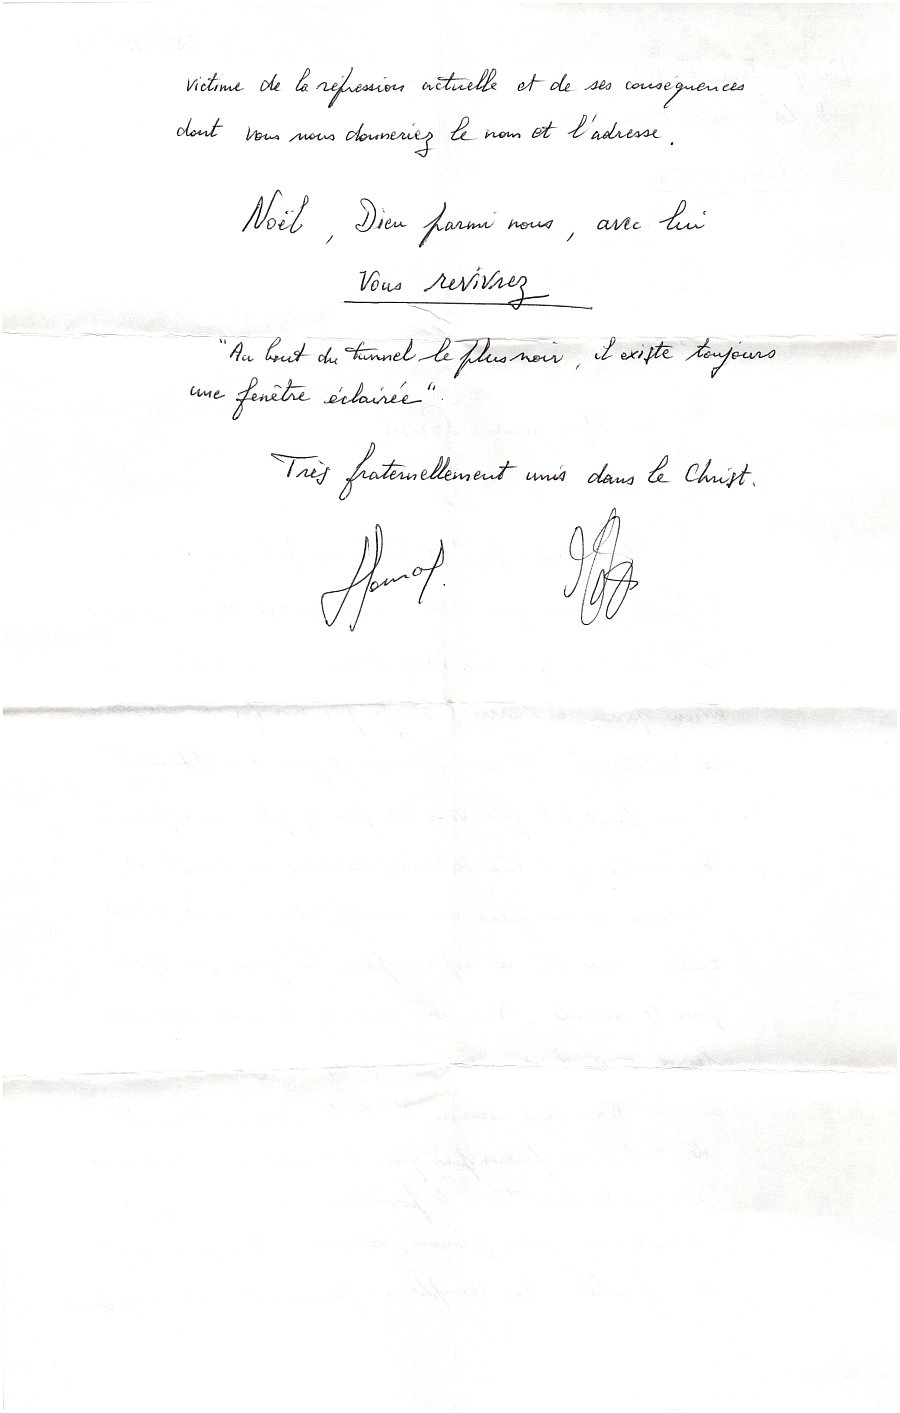 victime de la répression actuelle et de ses conséquences
dont vous nous donneriez le nom et l'adresse.
Noël, Dieu parmi nous, avec lui
Vous revivrez
"Au bout du tunnel le plus noir, il existe toujours
une fenêtre éclairée".
Très fraternellement unis dans le Christ.